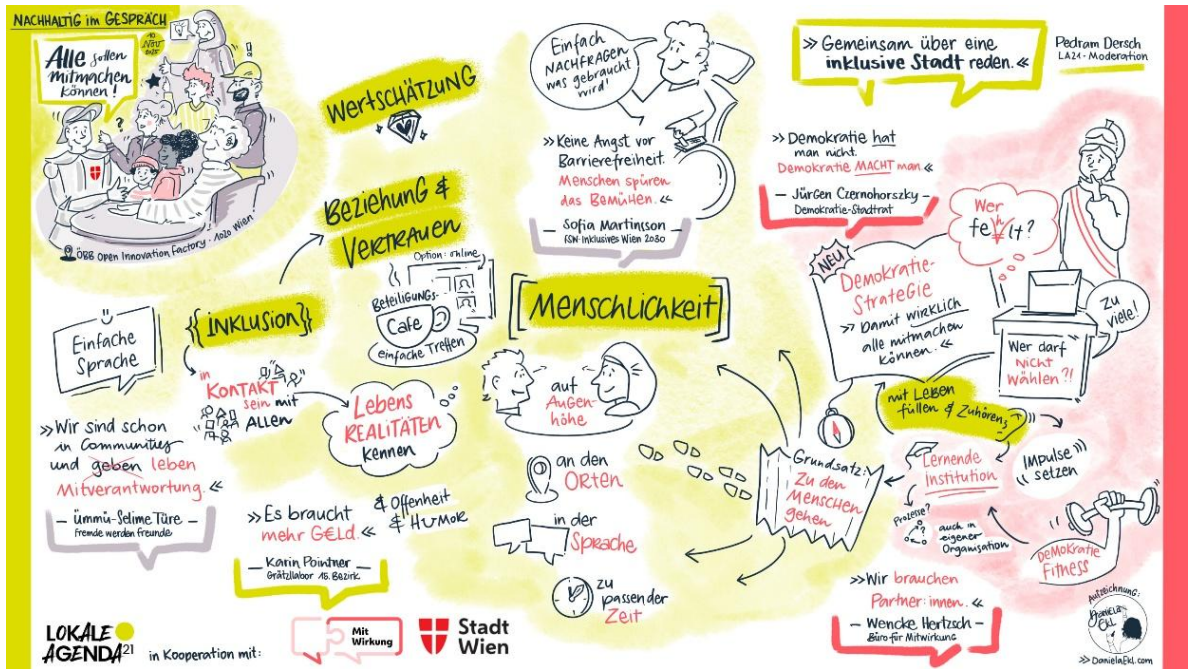 NACHHALTIG im GESPRÄCH
10.
NOV
2025
Alle sollen
mitmachen
können!
?
ÖBB Open Innovation Factory · 1020 Wien
WERTSCHÄTZUNG
BEZIEHUNG &
VERTRAUEN
{INKLUSION}
Einfache
Sprache
in
KONTAKT
sein mit
ALLEN
Option: online
BETEILIGUNGS-
Café
einfache Treffen
Lebens
REALITÄTEN
kennen
»Wir sind schon
in Communities
und geben leben
Mitverantwortung.«
— Ümmü-Selime Türe —
fremde werden freunde
»Es braucht
mehr G€Ld.«
— Karin Pointner —
Grätzllabor 15. Bezirk
& Offenheit
& HUMOR
Einfach
NACHFRAGEN
was gebraucht
wird!
»Keine Angst vor
Barrierefreiheit.
Menschen spüren
das Bemühen.«
— Sofia Martinsson —
FSW-Inklusives Wien 2030
[MENSCHLICHKEIT]
auf
AUGEN-
HÖHE
an den
ORTEN
in der
Sprache
zu
passender
Zeit
» Gemeinsam über eine
inklusive Stadt reden. «
Pedram Dersch
LA21-Moderation
»Demokratie hat
man nicht.
Demokratie MACHT man.«
— Jürgen Czernohorszky —
Demokratie-Stadtrat
Wer
fehlt?
NEU
DEMOKRATIE-
STRATEGIE
» Damit wirklich
alle mitmachen
können. «
ZU
viele!
Wer darf
nicht
wählen?!
mit LEBEN
füllen & Zuhören
Grundsatz:
Zu den
Menschen
gehen
Lernende
Institution
IMPULSE
setzen
Prozesse?
?
auch in
eigener
Organisation
DEMOKRATIE
FITNESS
»Wir brauchen
Partner:innen. «
— Wencke Hertzsch —
Büro für Mitwirkung
Aufzeichnung:
DANIELA
EKL
>> DanielaEkl.com
LOKALE
AGENDA 21
in Kooperation mit:
Mit
Wirkung
Stadt
Wien